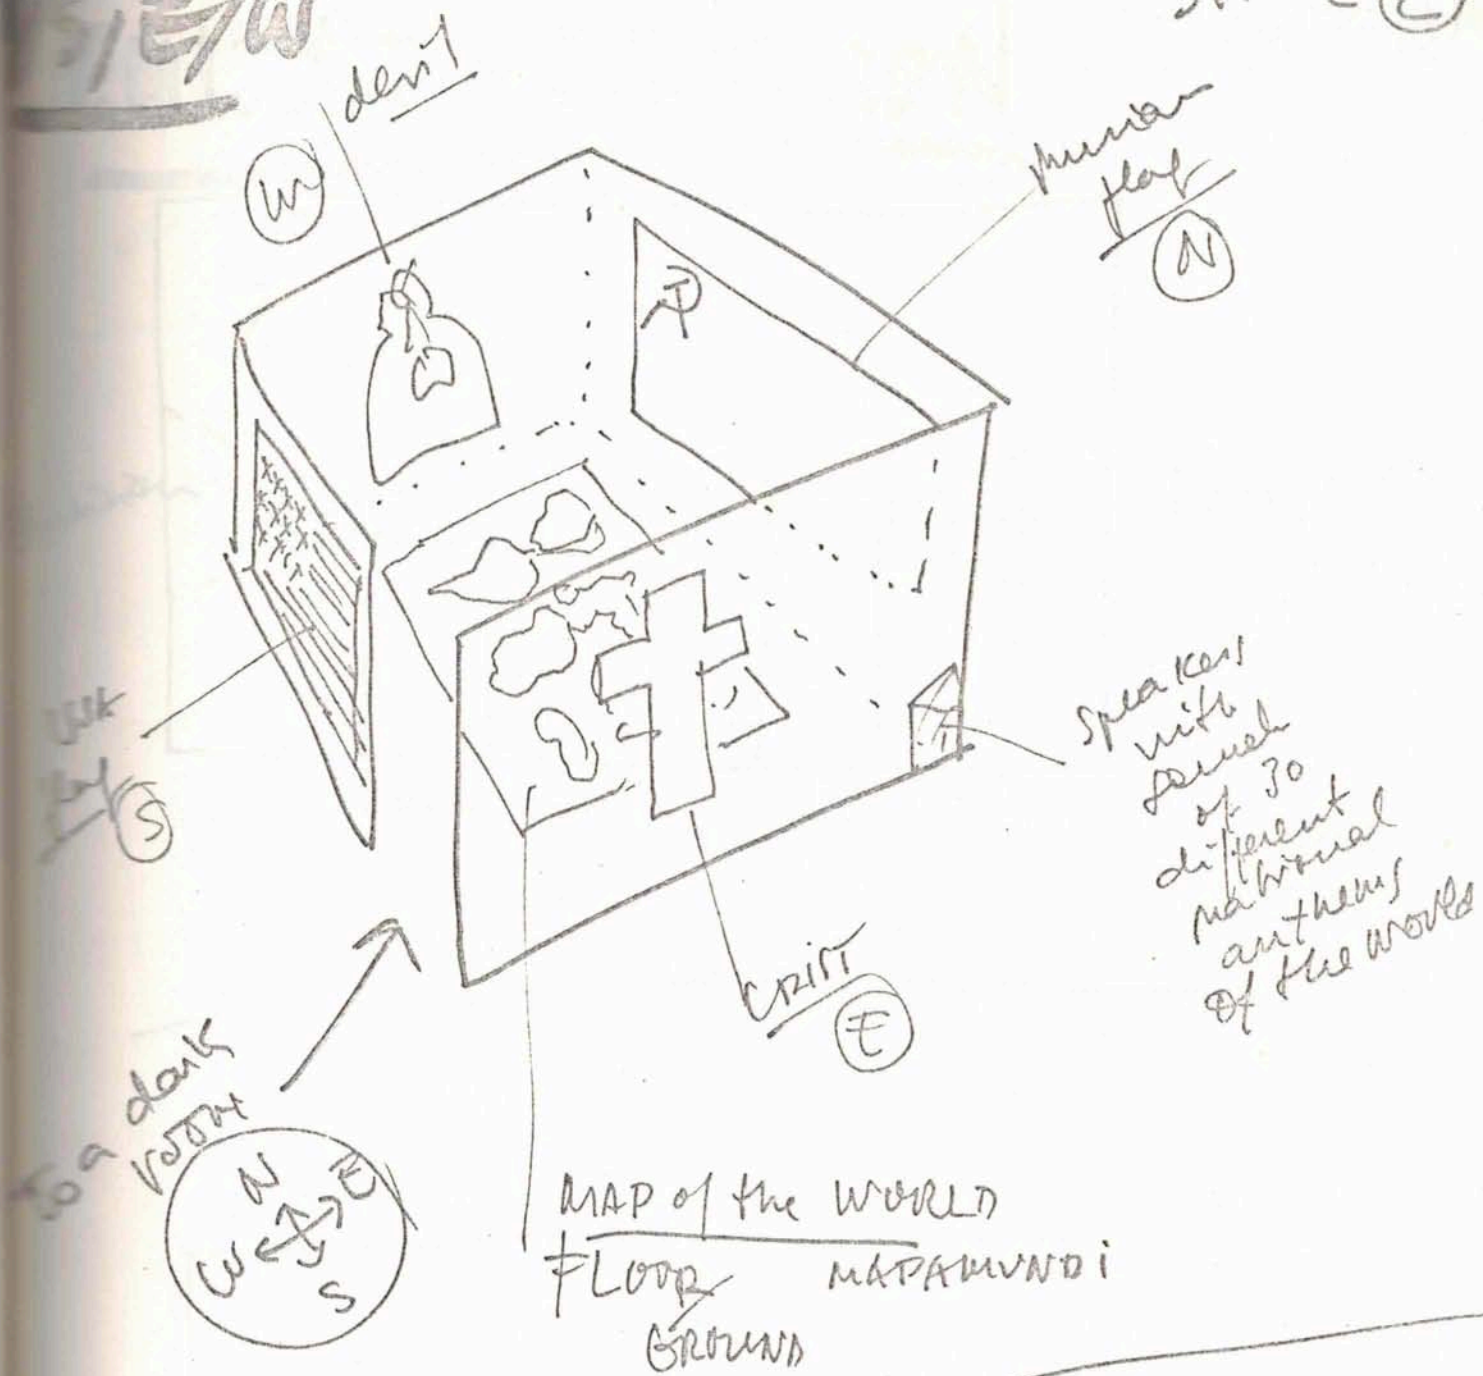 S/E/W
devil
W
flag
N
S
speakers
with
sound
of 30
different
national
anthems
of the world
CRIST
E
a dark
room
N
E
W
S
MAP of the WORLD
FLOOR MAPAMUNDI
GROUND